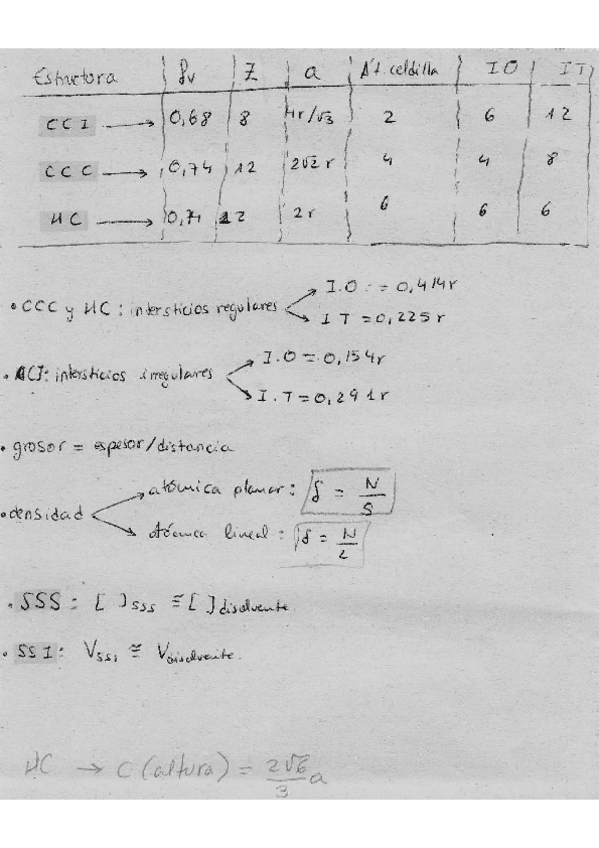 Estructura | fv | Z | a | At. celdilla | IO | IT
CCI → 0,68 | 8 | 4r/√3 | 2 | 6 | 12
CCC → 0,74 | 12 | 2√2 r | 4 | 4 | 8
HC → 0,74 | 12 | 2r | 6 | 6 | 6
• CCC y HC : intersticios regulares
I.O. = 0,414r
I T = 0,225 r
• CCI: intersticios irregulares
I.O = 0,154r
I.T = 0,291r
• grosor = espesor/distancia
• densidad
atómica planar : δ = N/S
Atómica lineal : δ = N/L
• SSS : [ ]sss ≅ [ ]disolvente
• SSI : Vssi ≅ Vdisolvente
HC → C (altura) = 2√6/3 a